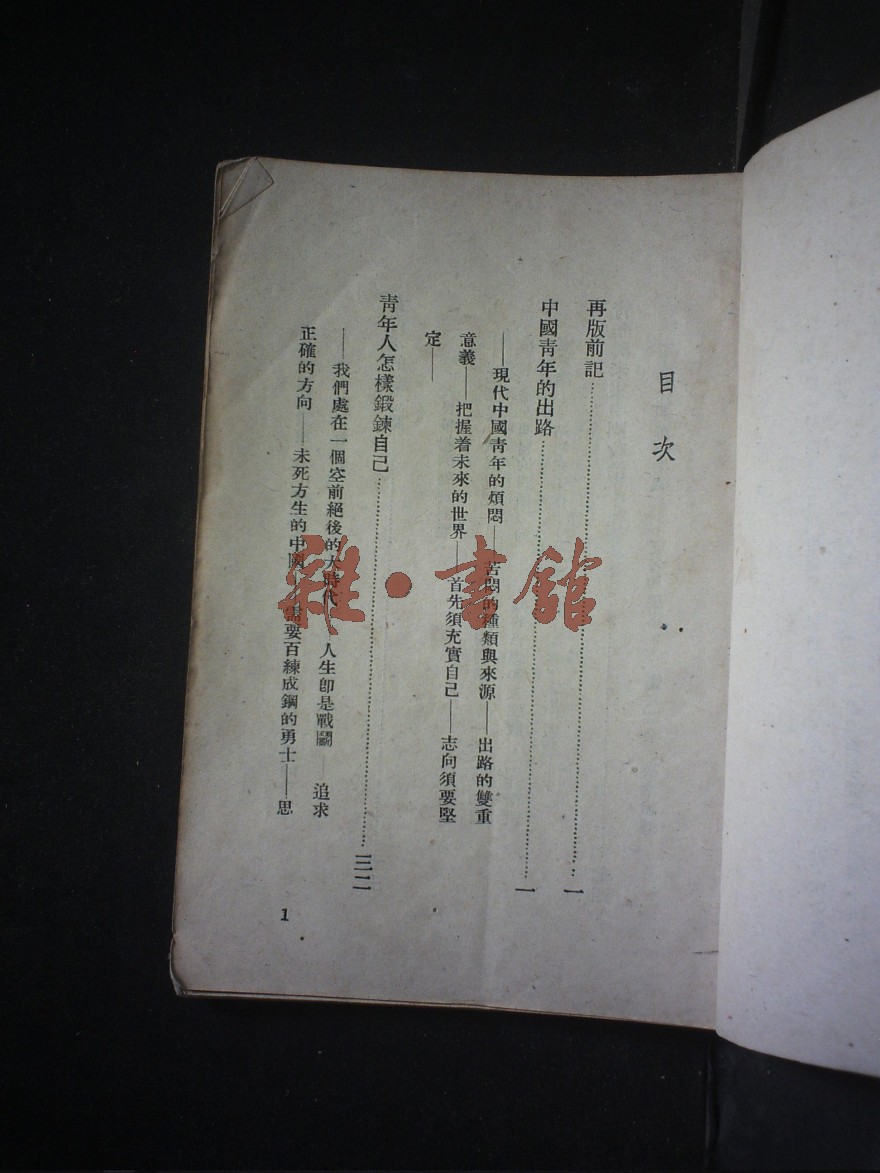 目次
再版前記……一
中國靑年的出路……一
——現代中國靑年的煩悶——苦悶的種類與來源——出路的雙重
意義——把握着未來的世界——首先須充實自己——志向須要堅
定——
靑年人怎樣鍛鍊自己……三二
——我們處在一個空前絕後的大時代——人生卽是戰鬭——追求
正確的方向——未死方生的中國——需要百練成鋼的勇士——思
1
雜·書館